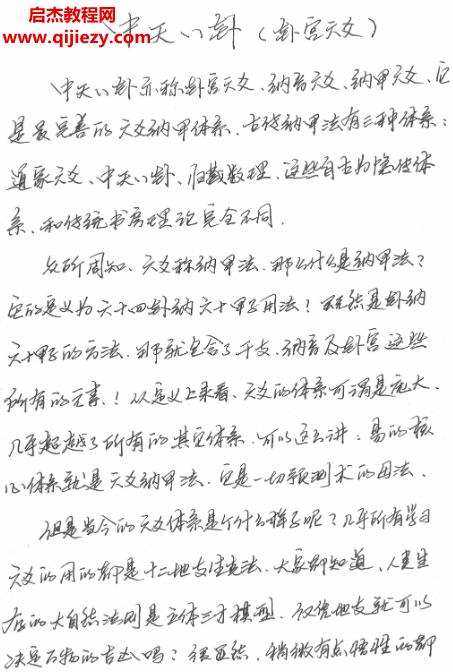 启杰易教程网
www.qijiezy.com
中天八卦（卦宫六爻）
中天八卦亦称卦宫六爻、纳音六爻、纳甲六爻，它
是最完善的六爻纳甲体系，古传纳甲法有三种体系：
道家六爻、中天八卦、归藏数理，这些自古为隐传体
系，和传统书房理论完全不同。
众所周知，六爻称纳甲法，那么什么是纳甲法？
它的定义为六十四卦纳六十甲子用法！既然是卦纳
六十甲子的方法，那就包含了干支、纳音及卦宫这些
所有的元素！从定义上来看，六爻的体系可谓是庞大，
几乎超越了所有的其它体系，可以这么讲：易的核
心体系就是六爻纳甲法，它是一切预测术的用法。
但是当今的六爻体系是个什么样子呢？几乎所有学习
六爻的用的都是十二地支生克法，大家都知道，人类生
存的大自然法则是立体三才模型，仅凭地支就可以
决定万物的吉凶吗？很显然，稍微有点悟性的都